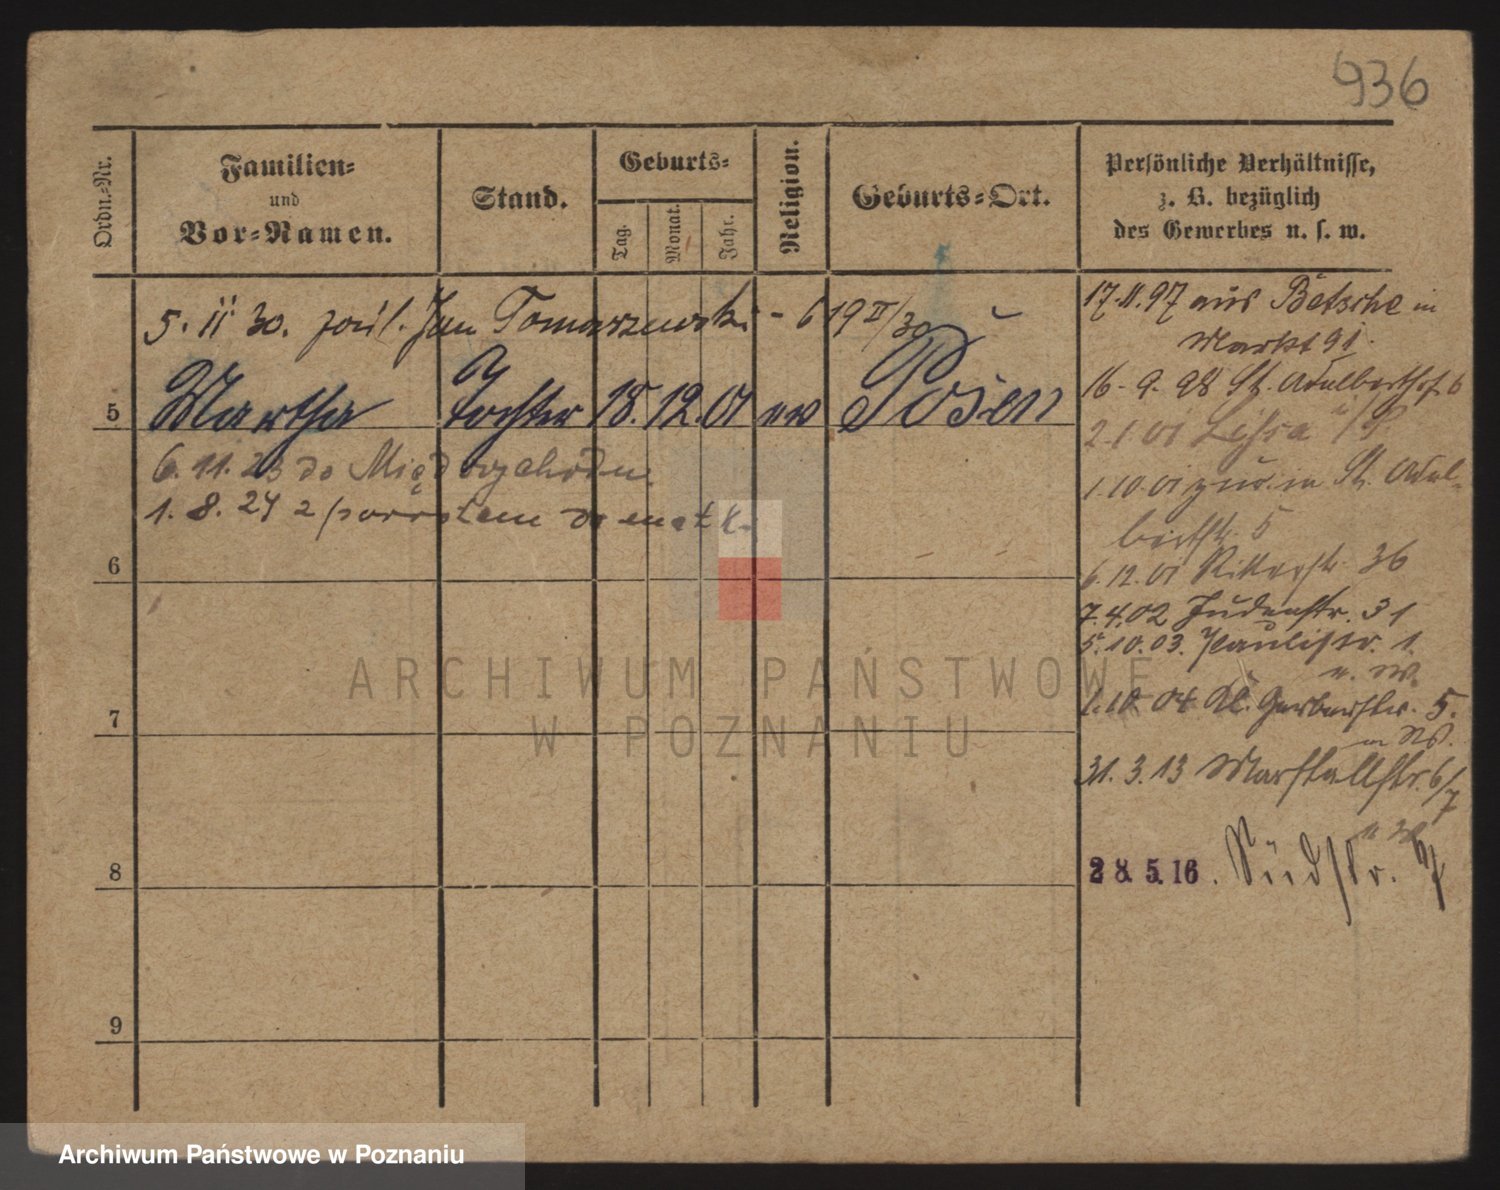 936
Ordn.-Nr.
Familien-
und
Vor-Namen.
Stand.
Geburts-
Tag.
Monat.
Jahr.
Religion.
Geburts-Ort.
Persönliche Verhältnisse,
z. B. bezüglich
des Gewerbes u. s. w.
5. II 30. Jan Tomaszewski - 6 19 II/30
5 Martha Tochter 18. 12. 01 Posen
6. 11. 23 do Międzychodu
1. 8. 24 z powrotem do matki
6
7
8
9
17. 11. 97 aus Betsche in
Markt 91.
16. 9. 98 St. Adalbertstr. 6
2. 1. 01
1. 10. 01 zur. in St. Adal-
bertstr. 5
6. 12. 01 Ritterstr. 36
7. 4. 02 Judenstr. 31
5. 10. 03. Paulistr. 1.
1. 10. 04 Kl. Gerberstr. 5.
31. 3. 13 Marstallstr. 6/7
28. 5. 16. Südstr.
ARCHIWUM PAŃSTWOWE
W POZNANIU
Archiwum Państwowe w Poznaniu